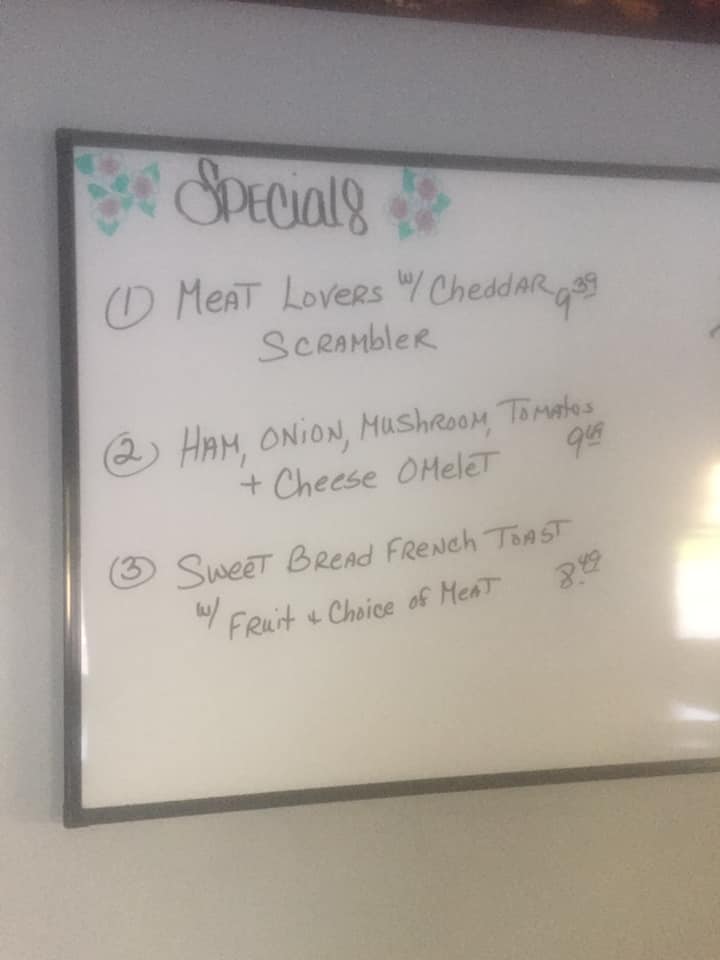 SPECials
① MeAT LoveRs w/ CheddAR 9 39
SCRAMbleR
② HAM, ONiON, MUShRooM, ToMAtos
+ Cheese OMeleT
③ SweeT BReAd FReNch ToAST
w/ FRuit + Choice of MeAT 8.49